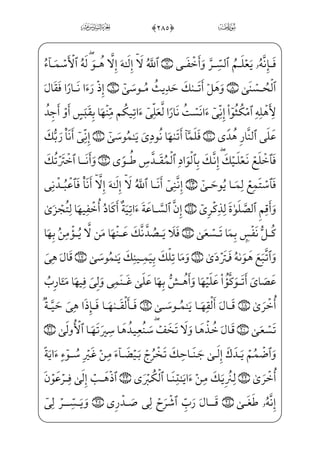 سورة طه ﴿٢٨٥﴾ الجزء السادس عشر
فَإِنَّهُۥ يَعْلَمُ ٱلسِّرَّ وَأَخْفَى ۝ ٱللَّهُ لَآ إِلَٰهَ إِلَّا هُوَ ۖ لَهُ ٱلْأَسْمَآءُ
ٱلْحُسْنَىٰ ۝ وَهَلْ أَتَىٰكَ حَدِيثُ مُوسَىٰٓ ۝ إِذْ رَءَا نَارًا فَقَالَ
لِأَهْلِهِ ٱمْكُثُوٓا۟ إِنِّىٓ ءَانَسْتُ نَارًا لَّعَلِّىٓ ءَاتِيكُم مِّنْهَا بِقَبَسٍ أَوْ أَجِدُ
عَلَى ٱلنَّارِ هُدًى ۝ فَلَمَّآ أَتَىٰهَا نُودِىَ يَٰمُوسَىٰٓ ۝ إِنِّىٓ أَنَا۠ رَبُّكَ
فَٱخْلَعْ نَعْلَيْكَ ۖ إِنَّكَ بِٱلْوَادِ ٱلْمُقَدَّسِ طُوًى ۝ وَأَنَا ٱخْتَرْتُكَ
فَٱسْتَمِعْ لِمَا يُوحَىٰٓ ۝ إِنَّنِىٓ أَنَا ٱللَّهُ لَآ إِلَٰهَ إِلَّآ أَنَا۠ فَٱعْبُدْنِى
وَأَقِمِ ٱلصَّلَوٰةَ لِذِكْرِىٓ ۝ إِنَّ ٱلسَّاعَةَ ءَاتِيَةٌ أَكَادُ أُخْفِيهَا لِتُجْزَىٰ
كُلُّ نَفْسٍۭ بِمَا تَسْعَىٰ ۝ فَلَا يَصُدَّنَّكَ عَنْهَا مَن لَّا يُؤْمِنُ بِهَا
وَٱتَّبَعَ هَوَىٰهُ فَتَرْدَىٰ ۝ وَمَا تِلْكَ بِيَمِينِكَ يَٰمُوسَىٰ ۝ قَالَ هِىَ
عَصَاىَ أَتَوَكَّؤُا۟ عَلَيْهَا وَأَهُشُّ بِهَا عَلَىٰ غَنَمِى وَلِىَ فِيهَا مَـَٔارِبُ
أُخْرَىٰ ۝ قَالَ أَلْقِهَا يَٰمُوسَىٰ ۝ فَأَلْقَىٰهَا فَإِذَا هِىَ حَيَّةٌ
تَسْعَىٰ ۝ قَالَ خُذْهَا وَلَا تَخَفْ ۖ سَنُعِيدُهَا سِيرَتَهَا ٱلْأُولَىٰ ۝
وَٱضْمُمْ يَدَكَ إِلَىٰ جَنَاحِكَ تَخْرُجْ بَيْضَآءَ مِنْ غَيْرِ سُوٓءٍ ءَايَةً
أُخْرَىٰ ۝ لِنُرِيَكَ مِنْ ءَايَٰتِنَا ٱلْكُبْرَى ۝ ٱذْهَبْ إِلَىٰ فِرْعَوْنَ
إِنَّهُۥ طَغَىٰ ۝ قَالَ رَبِّ ٱشْرَحْ لِى صَدْرِى ۝ وَيَسِّرْ لِىٓ